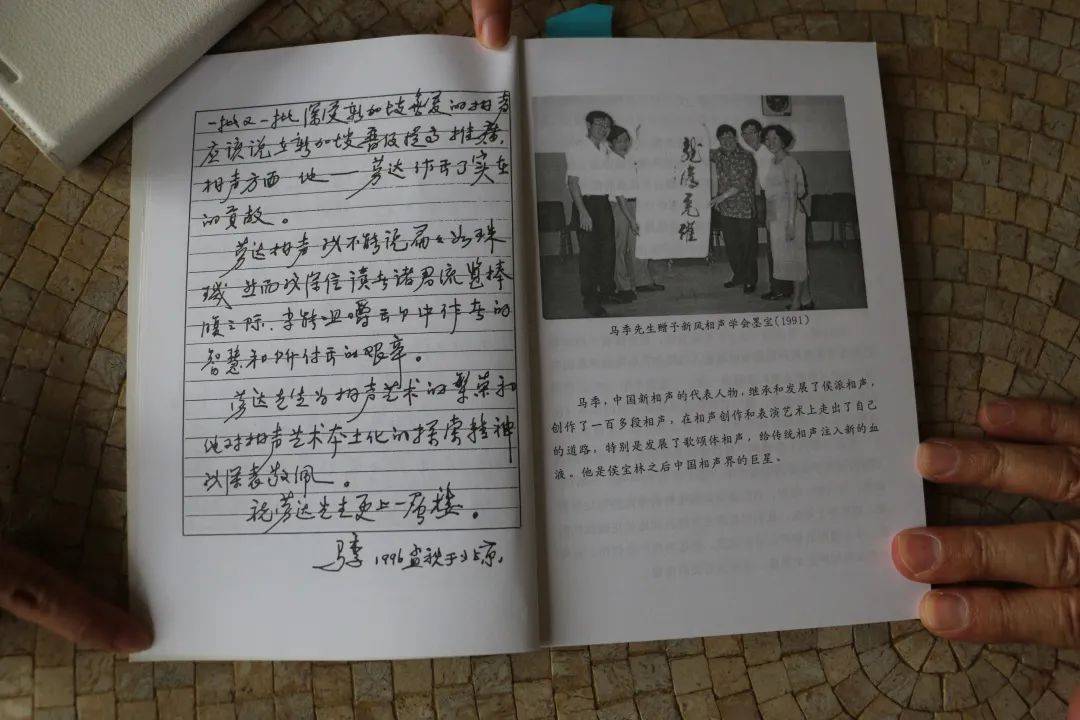 一批又一批深受新加坡喜爱的相声
应该说在新加坡普及提高推广
相声方面 他一劳达作出了实在
的贡献。
劳达相声 我不能说篇篇如珠
玑 然而我深信读者诸君流览捧
腹之际、才能咀嚼出个中作者的
智慧和所付出的艰辛。
劳达先生为相声艺术的繁荣和
他对相声艺术本土化的探索精神
我深表敬佩。
祝劳达先生更上一层楼。
马季 1996孟秋于北京.
马季先生赠予新风相声学会墨宝(1991)
马季,中国新相声的代表人物,继承和发展了侯派相声,
创作了一百多段相声,在相声创作和表演艺术上走出了自己
的道路,特别是发展了歌颂体相声,给传统相声注入新的血
液。他是侯宝林之后中国相声界的巨星。